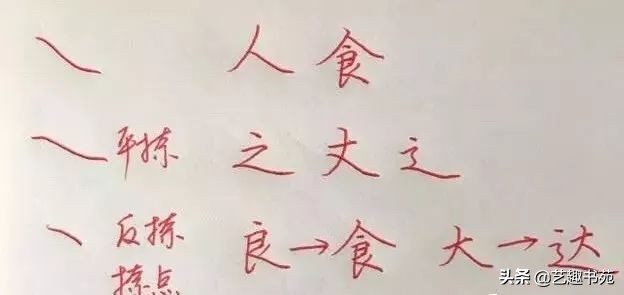 ㇏ 人 食
㇏ 平捺 之 丈 辶
㇏ 反捺 良→食 大→达
捺点
头条 @艺趣书苑